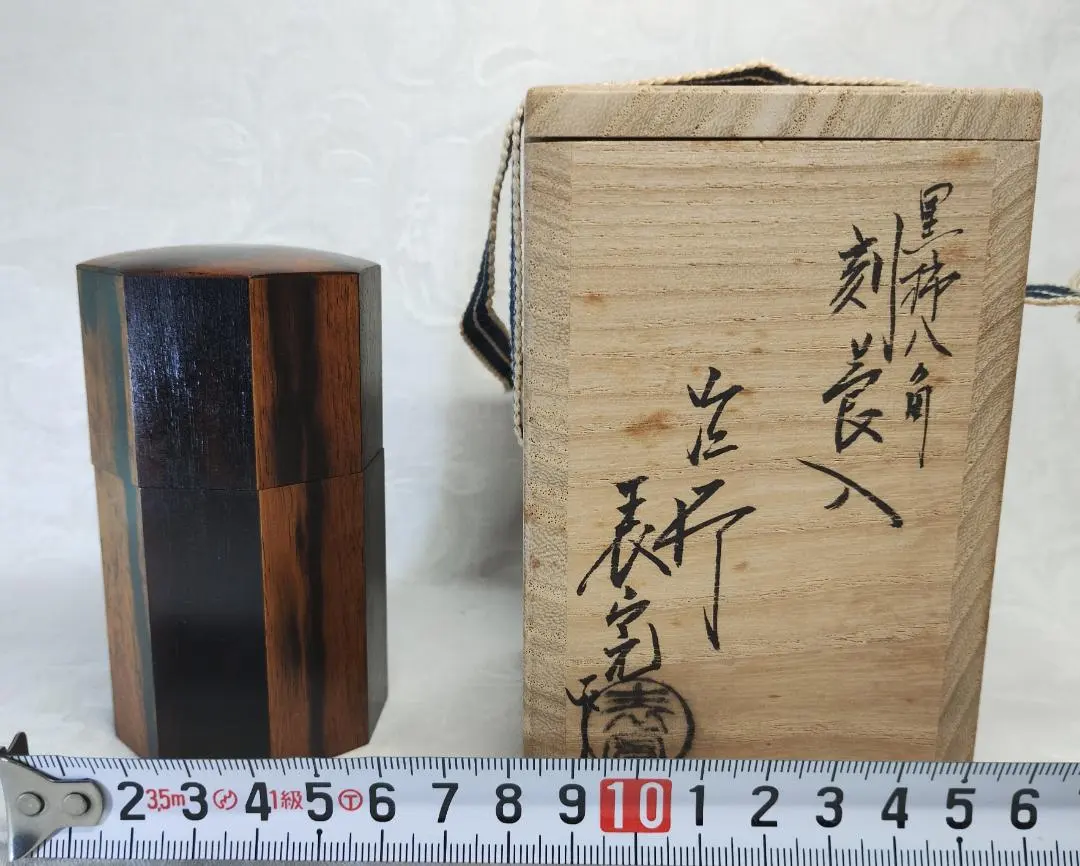 黒柿八角
刻莨入
表完
2 3.5m 3 4 1級 5 Ⓣ 6 7 8 9 10 1 2 3 4 5 6